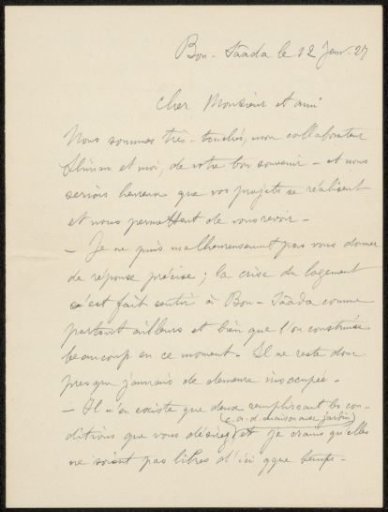 Bou-Saâda le 12 Janv 27
Cher Monsieur et ami
Nous sommes très-touchés, mon collaborateur
Sliman et moi, de votre bon souvenir - et nous
serions heureux que vos projets se réalisent
et nous permettent de vous revoir -
- Je ne puis malheureusement pas vous donner
de réponse précise ; la crise du logement
s'est fait sentir à Bou-Saâda comme
partout ailleurs et bien que l'on construise
beaucoup en ce moment - Il ne reste donc
presque jamais de demeure inoccupée -
- Il n'en existe que deux remplissant les con-
(c-a-d maison avec jardin)
ditions que vous désirez et je crains qu'elles
ne soient pas libres d'ici qque temps -